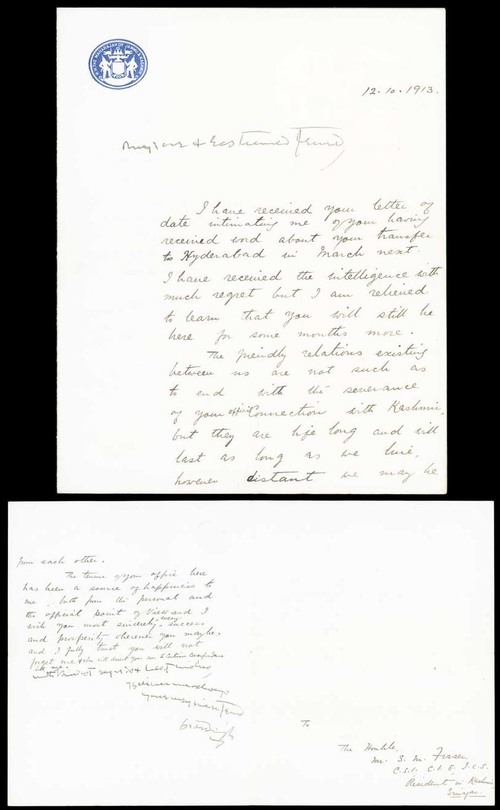 12.10.1913.
My dear & esteemed friend,
I have received your letter of
date intimating me of your having
received word about your transfer
to Hyderabad in March next.
I have received the intelligence with
much regret but I am relieved
to learn that you will still be
here for some months more.
The friendly relations existing
between us are not such as
to end with the severance
of your official connection with Kashmir,
but they are life long and will
last as long as we live,
however distant we may be
from each other.
The tenure of your office here
has been a source of happiness to
me, both from the personal and
the official point of view and I
wish you most sincerely every success
and prosperity wherever you may be,
and I fully trust you will not
forget me
with kindest regards & best wishes
To
The Honble
Mr. S. M. Fraser
C.S.I. C.I.E. I.C.S.
Resident in Kashmir
Srinagar.